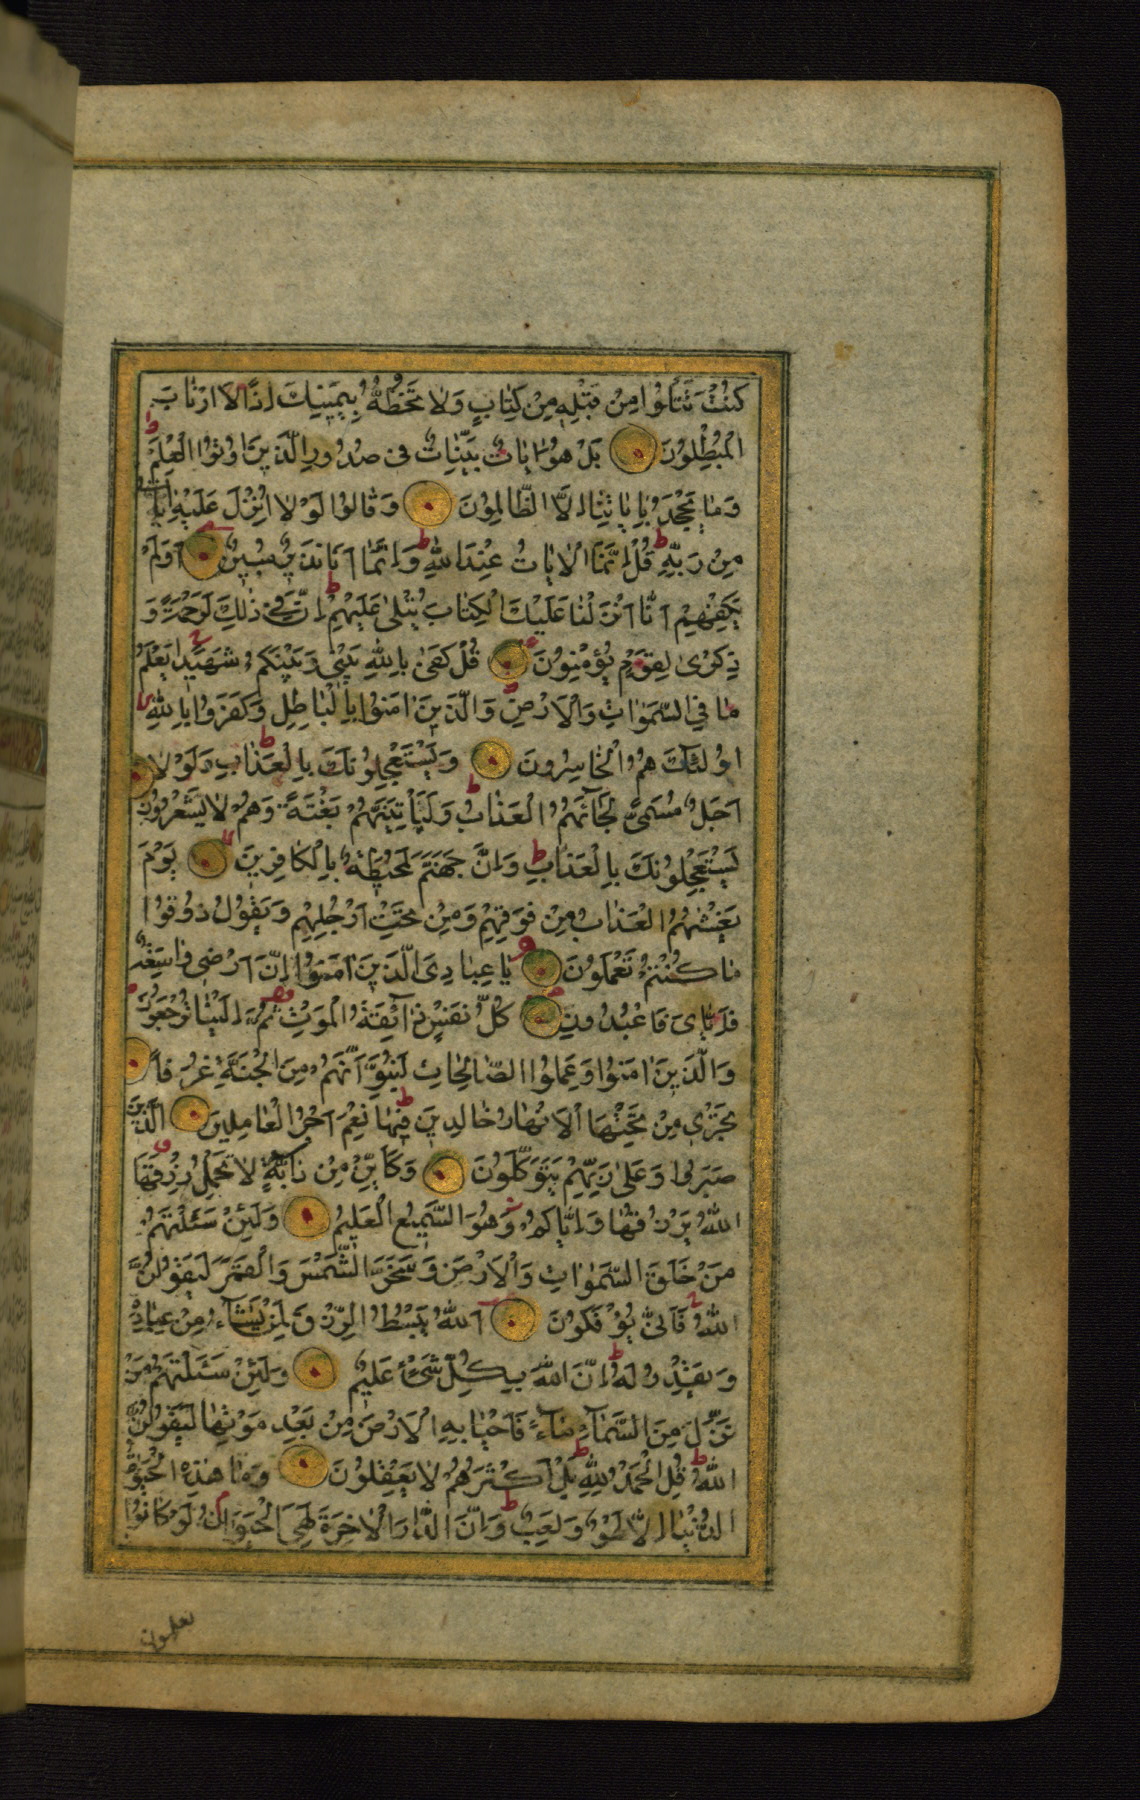 كُنْتَ تَتْلُوا مِنْ قَبْلِهِ مِنْ كِتَابٍ وَلَا تَخُطُّهُ بِيَمِينِكَ اِذًا لَا ارْتَابَ
الْمُبْطِلُونَ بَلْ هُوَ اٰيَاتٌ بَيِّنَاتٌ فِى صُدُورِ الَّذِينَ اُوتُوا الْعِلْمَ
وَمَا يَجْحَدُ بِاٰيَاتِنَا اِلَّا الظَّالِمُونَ وَقَالُوا لَوْلَا اُنْزِلَ عَلَيْهِ اٰيَاتٌ
مِنْ رَبِّهِ قُلْ اِنَّمَا الْاٰيَاتُ عِنْدَ اللّٰهِ وَاِنَّمَا اَنَا نَذِيرٌ مُبِينٌ اَوَلَمْ
يَكْفِهِمْ اَنَّا اَنْزَلْنَا عَلَيْكَ الْكِتَابَ يُتْلٰى عَلَيْهِمْ اِنَّ فِى ذٰلِكَ لَرَحْمَةً وَ
ذِكْرٰى لِقَوْمٍ يُؤْمِنُونَ قُلْ كَفٰى بِاللّٰهِ بَيْنِى وَبَيْنَكُمْ شَهِيدًا يَعْلَمُ
مَا فِى السَّمٰوَاتِ وَالْاَرْضِ وَالَّذِينَ اٰمَنُوا بِالْبَاطِلِ وَكَفَرُوا بِاللّٰهِ
اُولٰئِكَ هُمُ الْخَاسِرُونَ وَيَسْتَعْجِلُونَكَ بِالْعَذَابِ وَلَوْلَا
اَجَلٌ مُسَمًّى لَجَآءَهُمُ الْعَذَابُ وَلَيَاْتِيَنَّهُمْ بَغْتَةً وَهُمْ لَا يَشْعُرُونَ
يَسْتَعْجِلُونَكَ بِالْعَذَابِ وَاِنَّ جَهَنَّمَ لَمُحِيطَةٌ بِالْكَافِرِينَ يَوْمَ
يَغْشٰيهُمُ الْعَذَابُ مِنْ فَوْقِهِمْ وَمِنْ تَحْتِ اَرْجُلِهِمْ وَيَقُولُ ذُوقُوا
مَا كُنْتُمْ تَعْمَلُونَ يَا عِبَادِىَ الَّذِينَ اٰمَنُوا اِنَّ اَرْضِى وَاسِعَةٌ
فَاِيَّاىَ فَاعْبُدُونِ كُلُّ نَفْسٍ ذَآئِقَةُ الْمَوْتِ ثُمَّ اِلَيْنَا تُرْجَعُونَ
وَالَّذِينَ اٰمَنُوا وَعَمِلُوا الصَّالِحَاتِ لَنُبَوِّئَنَّهُمْ مِنَ الْجَنَّةِ غُرَفًا
تَجْرِى مِنْ تَحْتِهَا الْاَنْهَارُ خَالِدِينَ فِيهَا نِعْمَ اَجْرُ الْعَامِلِينَ الَّذِينَ
صَبَرُوا وَعَلٰى رَبِّهِمْ يَتَوَكَّلُونَ وَكَاَيِّنْ مِنْ دَآبَّةٍ لَا تَحْمِلُ رِزْقَهَا
اللّٰهُ يَرْزُقُهَا وَاِيَّاكُمْ وَهُوَ السَّمِيعُ الْعَلِيمُ وَلَئِنْ سَئَلْتَهُمْ
مَنْ خَلَقَ السَّمٰوَاتِ وَالْاَرْضَ وَسَخَّرَ الشَّمْسَ وَالْقَمَرَ لَيَقُولُنَّ
اللّٰهُ فَاَنّٰى يُؤْفَكُونَ اَللّٰهُ يَبْسُطُ الرِّزْقَ لِمَنْ يَشَآءُ مِنْ عِبَادِهِ
وَيَقْدِرُ لَهُ اِنَّ اللّٰهَ بِكُلِّ شَىْءٍ عَلِيمٌ وَلَئِنْ سَئَلْتَهُمْ مَنْ
نَزَّلَ مِنَ السَّمَآءِ مَآءً فَاَحْيَا بِهِ الْاَرْضَ مِنْ بَعْدِ مَوْتِهَا لَيَقُولُنَّ
اللّٰهُ قُلِ الْحَمْدُ لِلّٰهِ بَلْ اَكْثَرُهُمْ لَا يَعْقِلُونَ وَمَا هٰذِهِ الْحَيٰوةُ
الدُّنْيَا اِلَّا لَهْوٌ وَلَعِبٌ وَاِنَّ الدَّارَ الْاٰخِرَةَ لَهِىَ الْحَيَوَانُ لَوْ كَانُوا
يعلمون